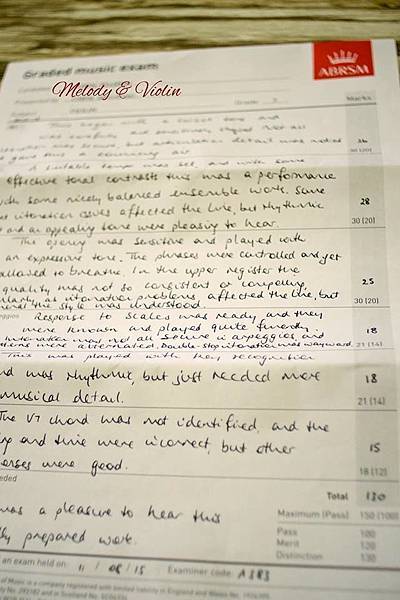 Graded music exam
ABRSM
Melody & Violin
Presented by
Grade
Marks
This began with a sweet tone and
was carefully and sensitively shaped. Not all
was secure, but articulation detail was noted
gave this a convincing
30 (20)
A suitable tempo was set, and with some
effective tonal contrasts this was a performance
with some nicely balanced ensemble work. Some
intonation issues affected the line, but rhythmic
and an appealing tone were pleasing to hear.
28
30 (20)
The opening was sensitive and played with
an expressive tone. The phrases were controlled and yet
allowed to breathe. In the upper register the
quality was not so consistent or compelling,
as intonation problems affected the line, but
the style was understood.
25
30 (20)
Response to scales was ready and they
were known and played quite fluently.
Intonation may not all secure in arpeggios, and
were alternated. Double-stop intonation was wayward.
18
21 (14)
This was played with key recognition
and was rhythmic, but just needed more
musical detail.
18
21 (14)
The V7 chord was not identified, and the
and time were incorrect, but other
were good.
15
18 (12)
Total 130
was a pleasure to hear this
prepared work.
Maximum (Pass) 150 (100)
Pass 100
Merit 120
Distinction 130
an exam held on: 11 / 08 / 15 Examiner code: A383
of Music is a company registered with limited liability in England and Wales